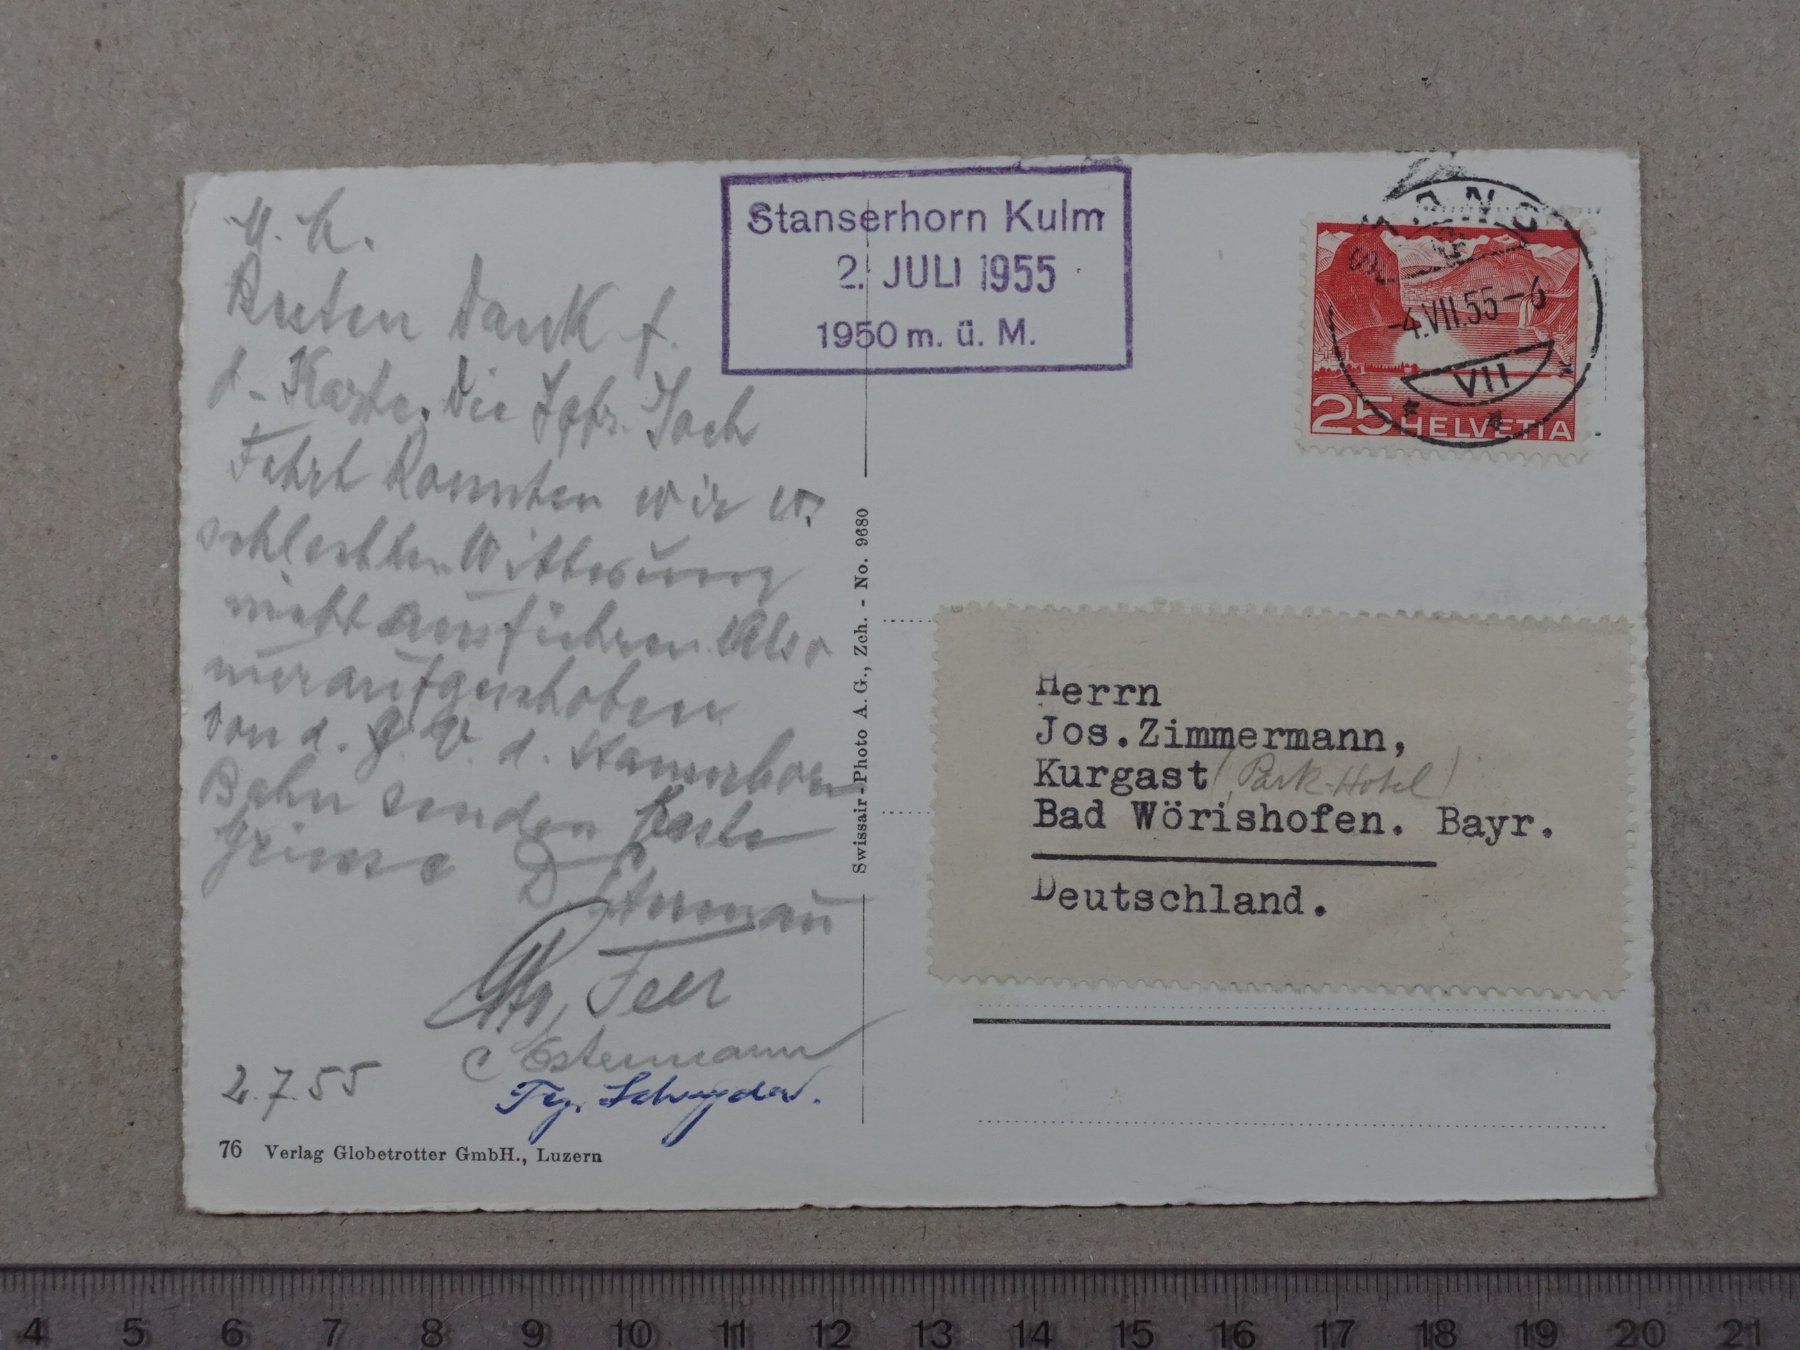 Stanserhorn Kulm
2. JULI 1955
1950 m. ü. M.
STANS
-4.VII.55-6
VII
25 HELVETIA
Besten Dank f.
d. Karte. Die Joch
Fahrt konnten wir w.
schlechten Witterung
nicht ausführen. Also
nur aufgeschoben
von d. G. V. d. Stanserhorn
Bahn senden beste
Grüsse
Feer
Estermann
2.7.55
76 Verlag Globetrotter GmbH., Luzern
Swissair-Photo A. G., Zch. - No. 9680
Herrn
Jos.Zimmermann,
Kurgast (Park-Hotel)
Bad Wörishofen. Bayr.
Deutschland.
4 5 6 7 8 9 10 11 12 13 14 15 16 17 18 19 20 21